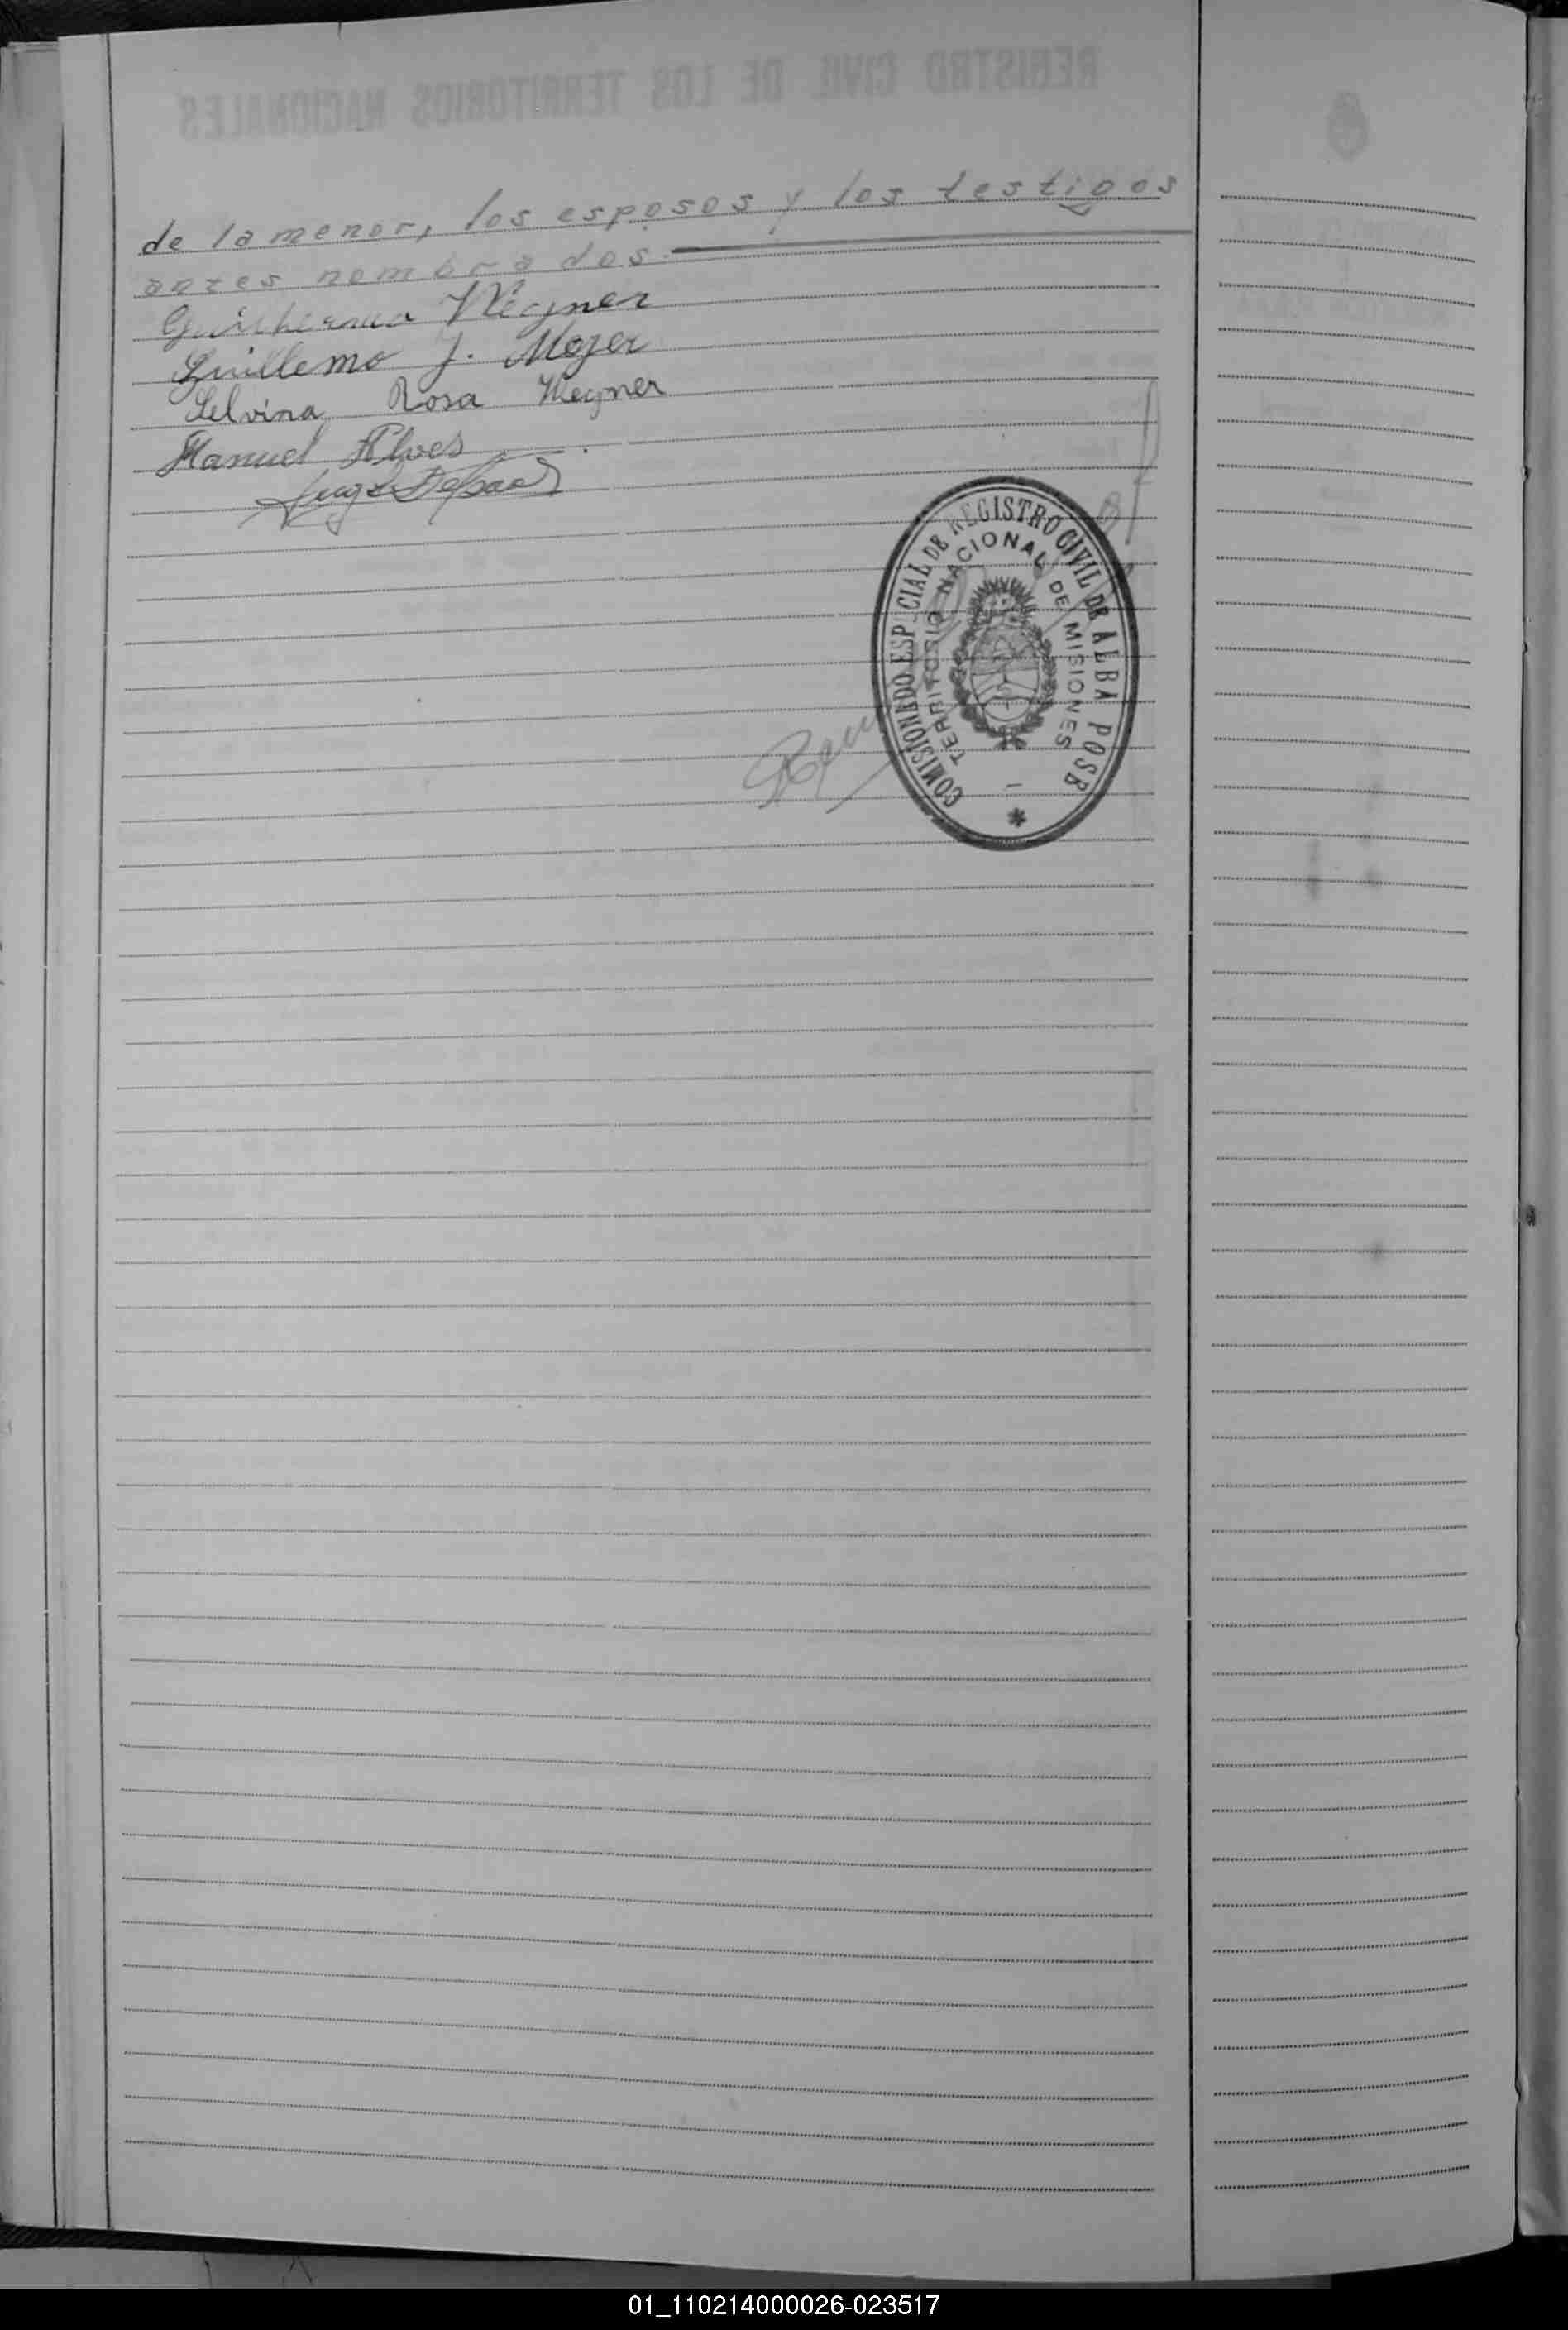 de la menor, los esposos y los testigos
antes nombrados.
Guilherma Wegner
Guillemo J. Mozer
Selvina Rosa Wegner
Manuel Alves
COMISIONADO ESPECIAL DE REGISTRO CIVIL DE ALBA POSE
TERRITORIO NACIONAL DE MISIONES
01_110214000026-023517